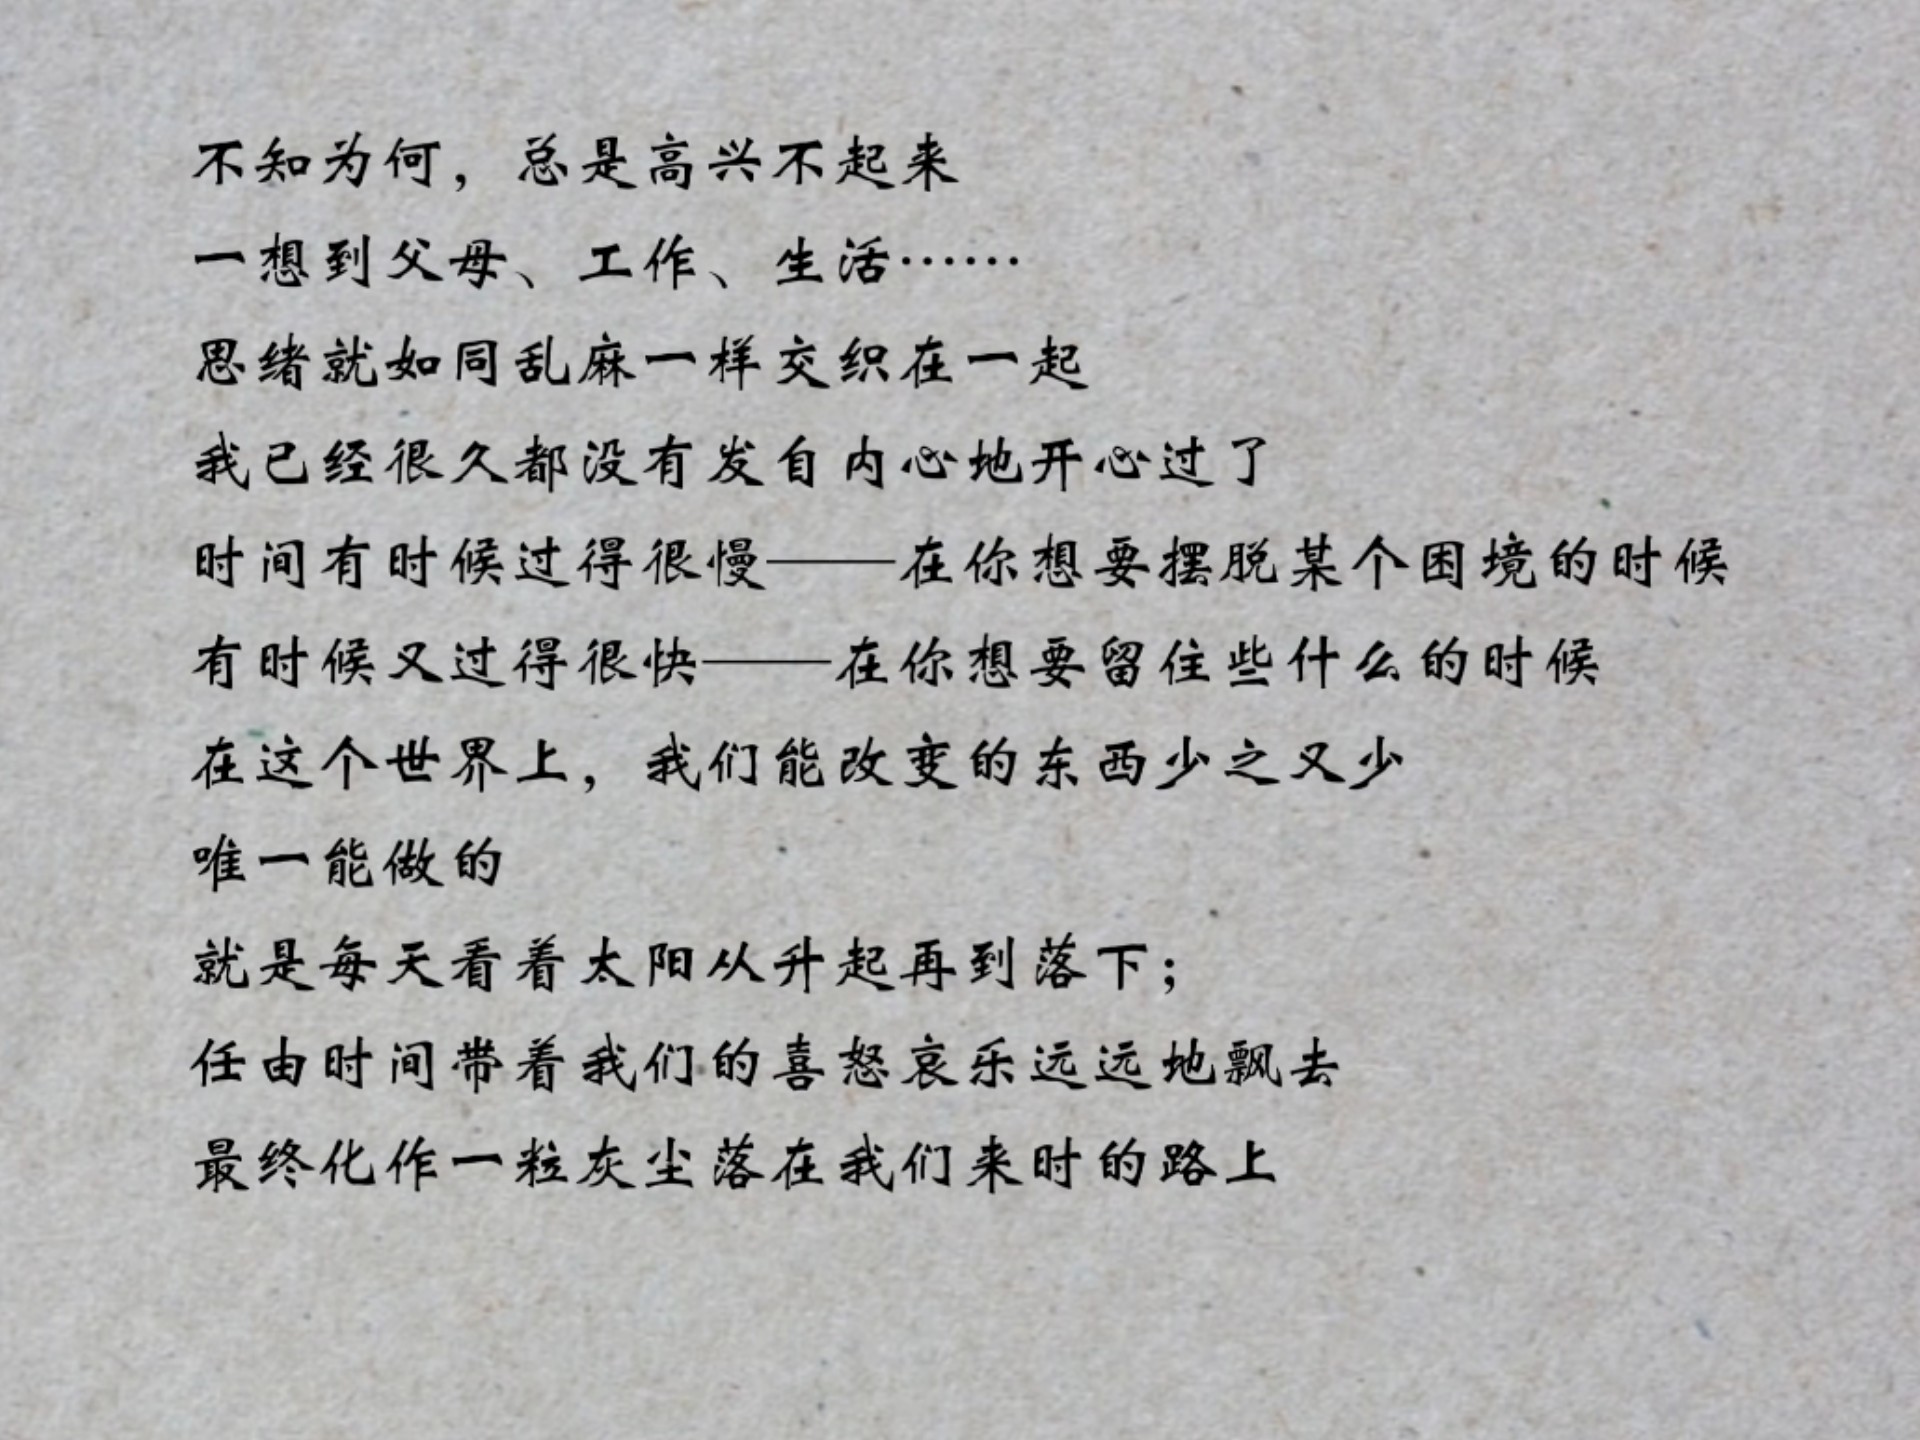 不知为何，总是高兴不起来
一想到父母、工作、生活……
思绪就如同乱麻一样交织在一起
我已经很久都没有发自内心地开心过了
时间有时候过得很慢——在你想要摆脱某个困境的时候
有时候又过得很快——在你想要留住些什么的时候
在这个世界上，我们能改变的东西少之又少
唯一能做的
就是每天看着太阳从升起再到落下；
任由时间带着我们的喜怒哀乐远远地飘去
最终化作一粒灰尘落在我们来时的路上